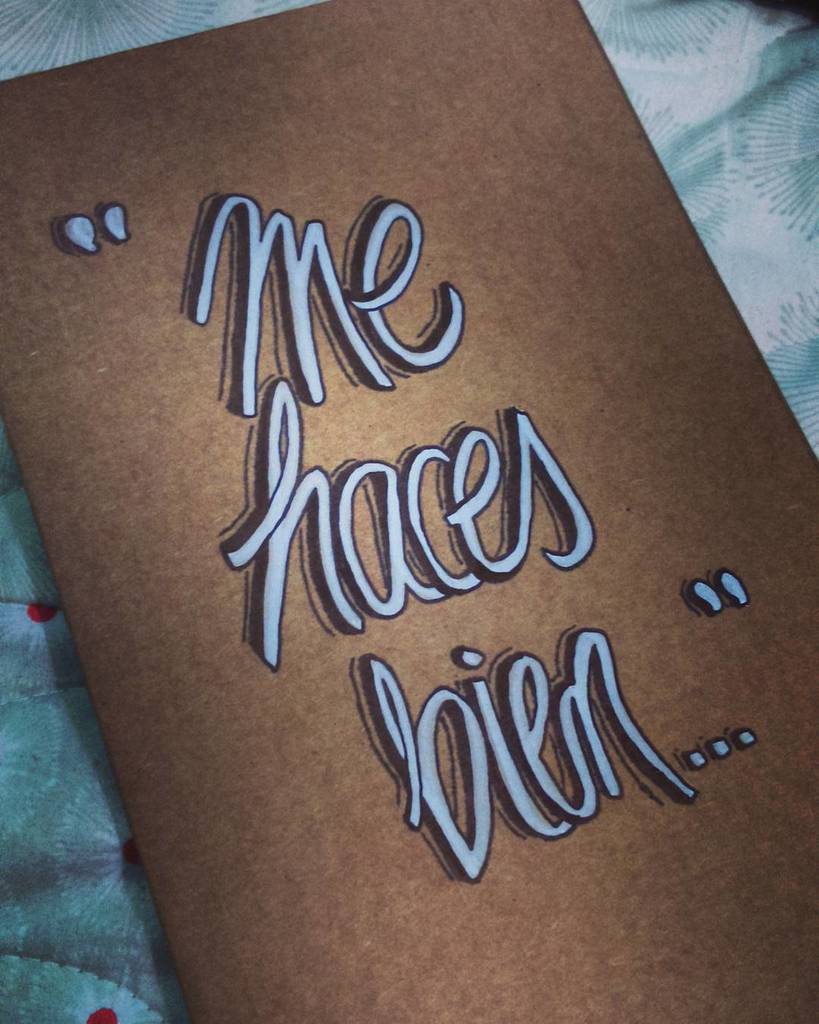 "Me
haces
bien..."